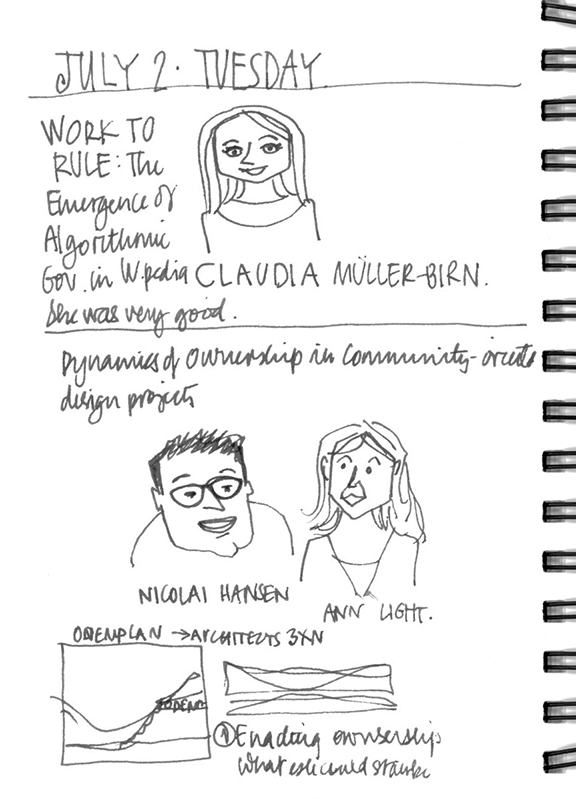 JULY 2. TUESDAY
WORK TO
RULE: The
Emergence of
Algorithmic
Gov. in W.pedia
CLAUDIA MÜLLER-BIRN.
She was very good.
Dynamics of Ownership in Community-
design projects
NICOLAI HANSEN
ANN LIGHT.
→ ARCHITECTS 3XN
① Enacting ownsership
What